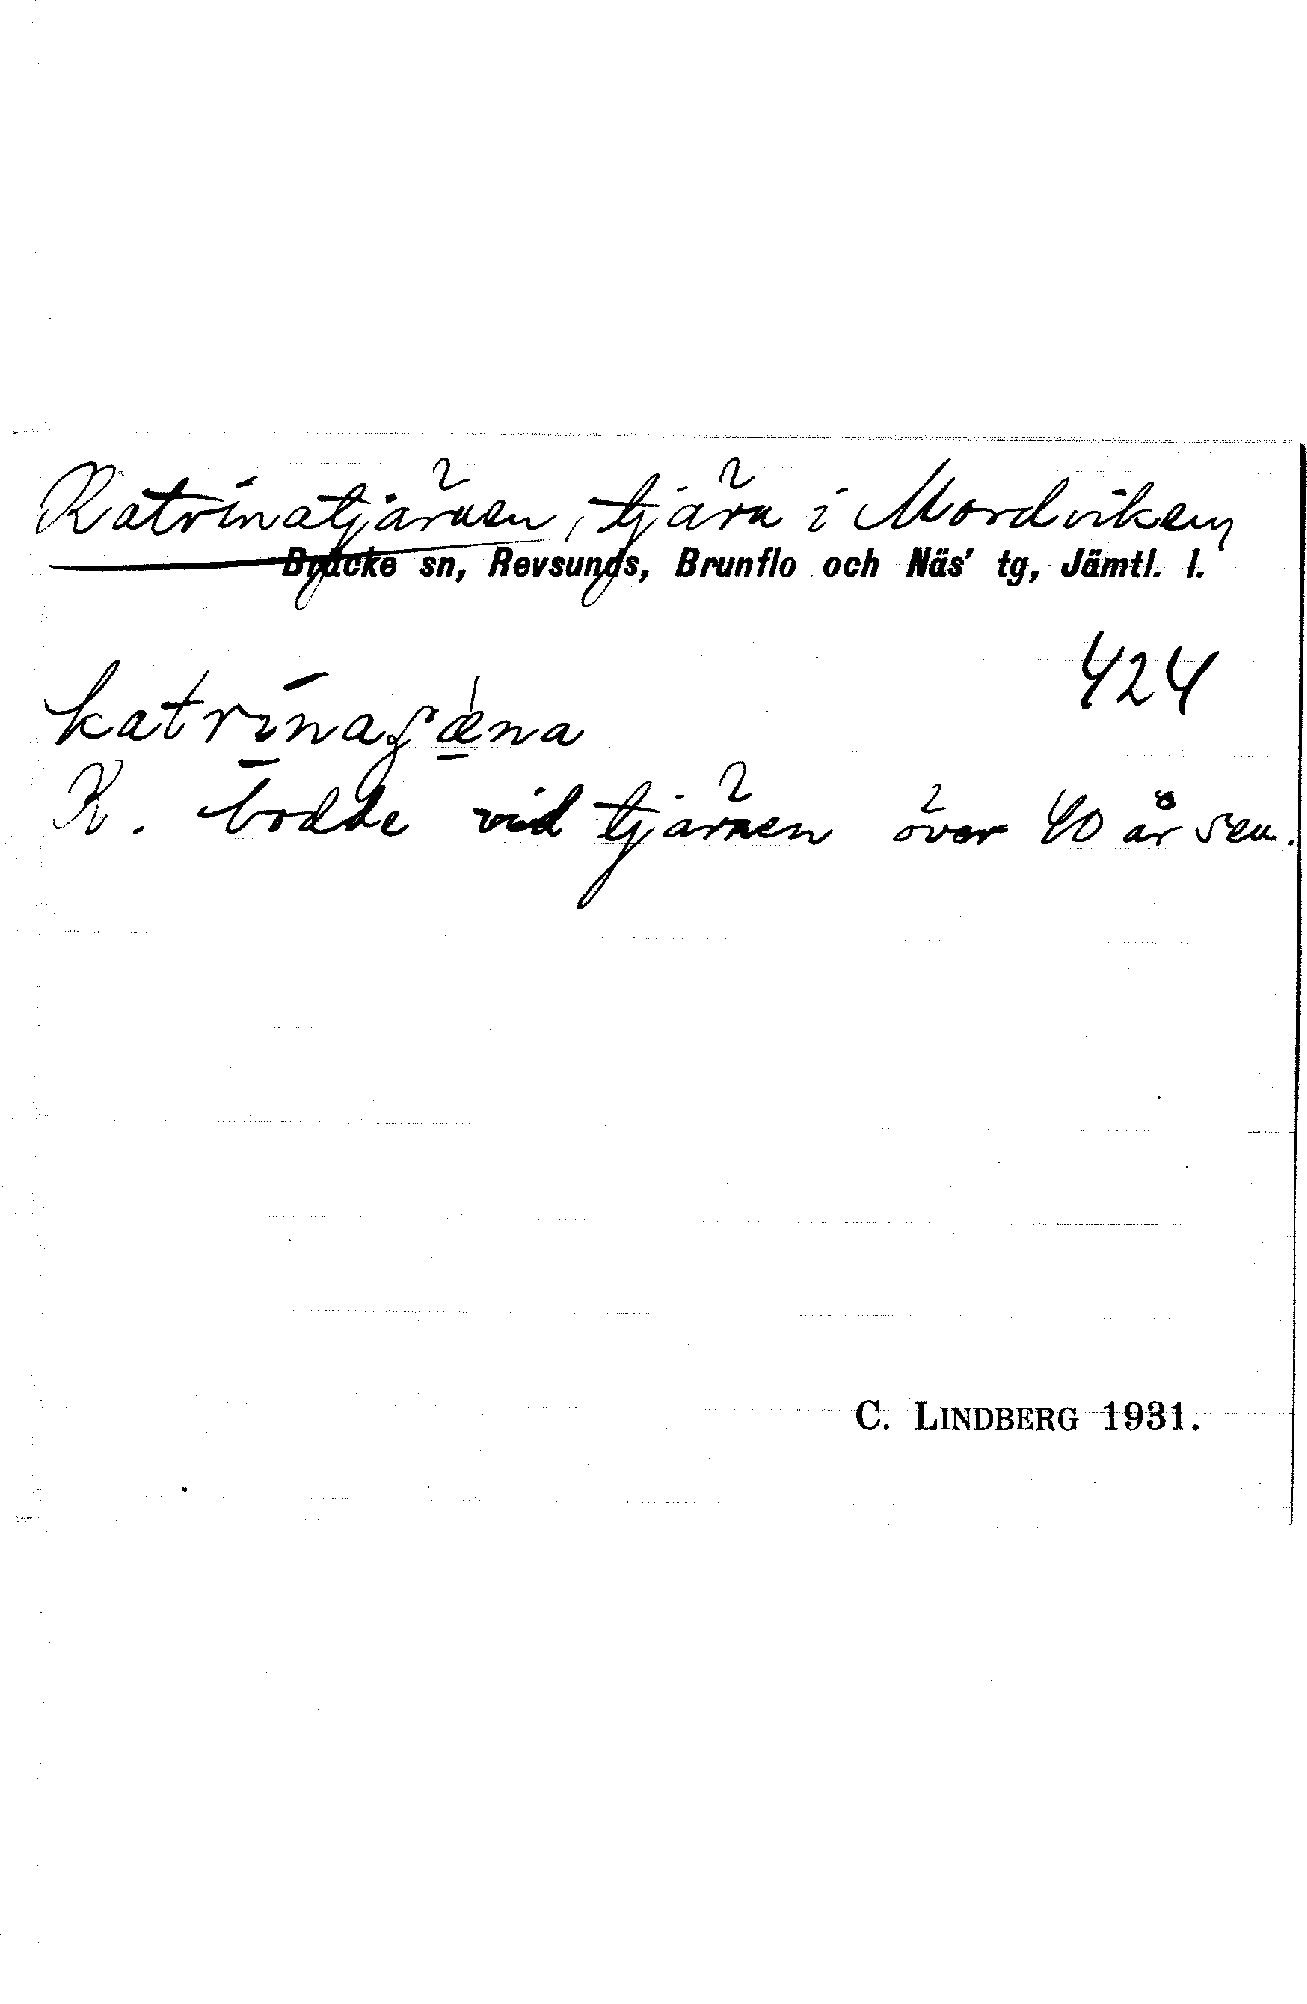 Katrinatjärnen, tjärn i Mordviken,
Bräcke sn, Revsunds, Brunflo och Näs' tg, Jämtl. l.
424
K. bodde vid tjärnen över 40 år sen.
C. LINDBERG 1931.